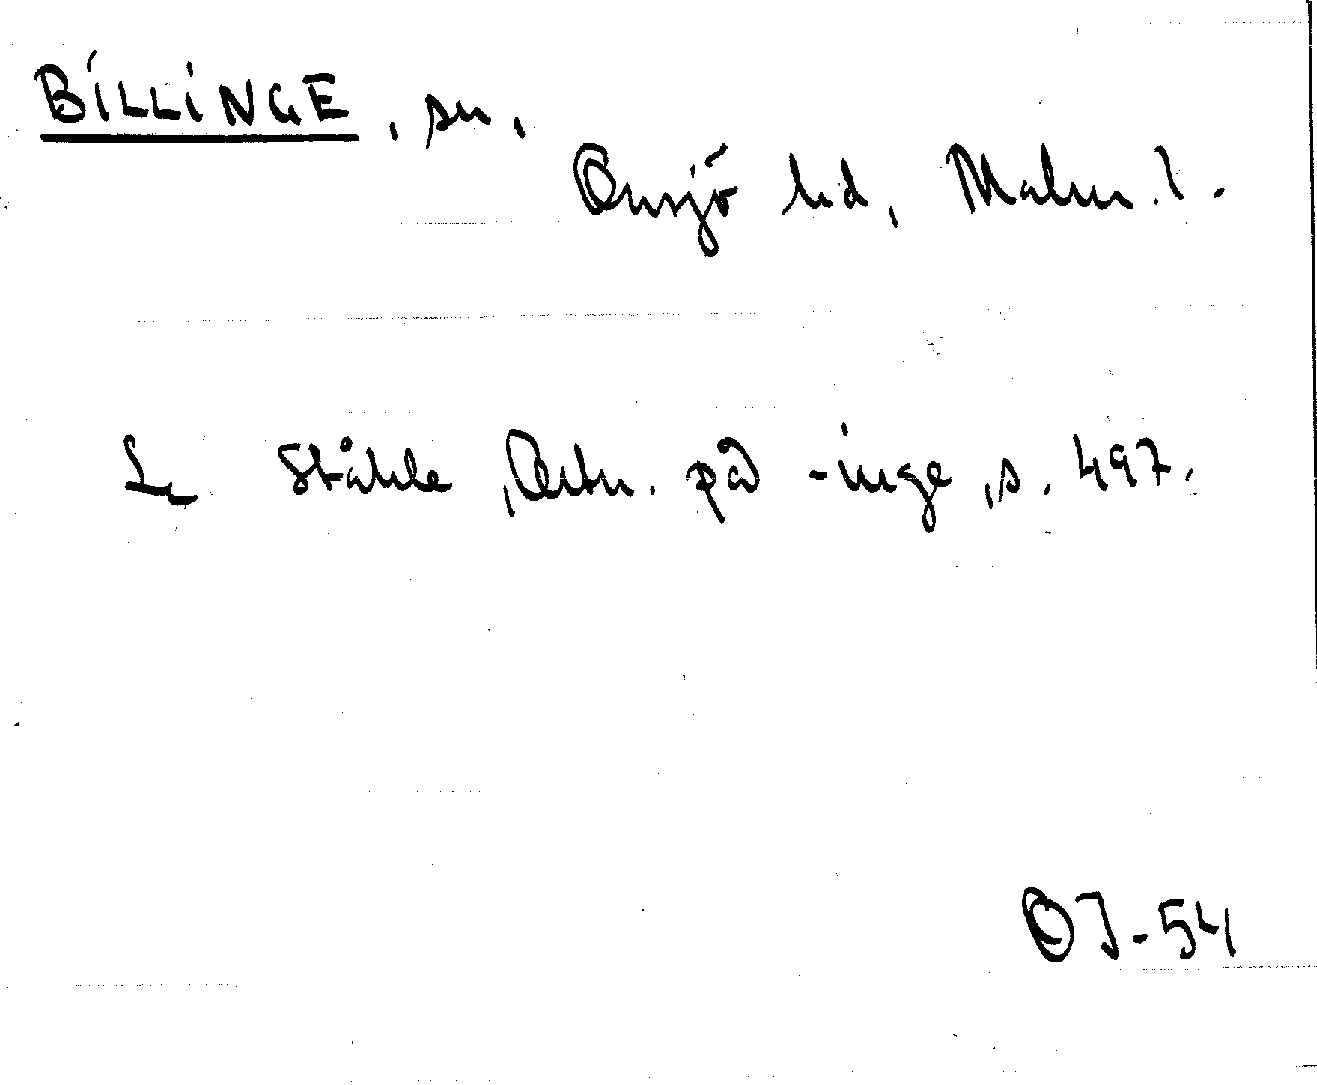 BILLINGE, sn,
Onsjö hd, Malm. l.
Ståhle, Ortn. på -inge, s. 497.
OJ-54